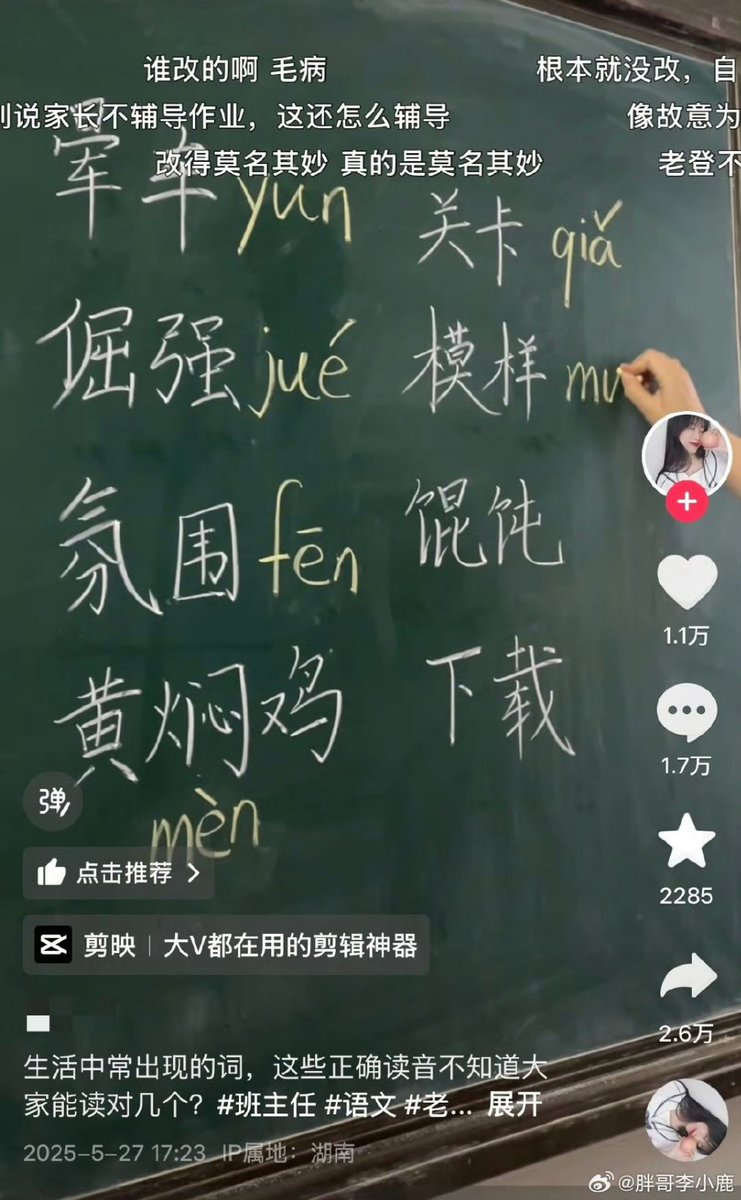 谁改的啊 毛病
根本就没改，自
说家长不辅导作业，这还怎么辅导
像故意为
改得莫名其妙 真的是莫名其妙
老登不
车 yun
关卡 qiǎ
倔强 jué
模样 mu
氛围 fēn
馄饨
黄焖鸡
下载
mèn
1.1万
1.7万
弹
点击推荐 >
2285
剪映 | 大V都在用的剪辑神器
2.6万
生活中常出现的词，这些正确读音不知道大
家能读对几个？#班主任 #语文 #老... 展开
2025-5-27 17:23 IP属地：湖南
@胖哥李小鹿